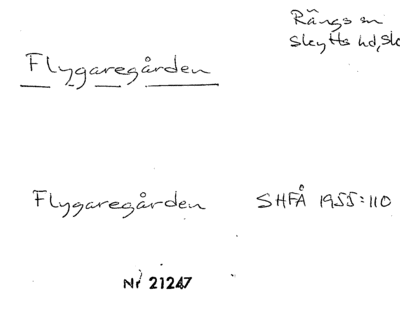 Rängs sn
Skytts hd, Sk
Flygaregården
Flygaregården SHFÅ 1955:110
Nr 21247